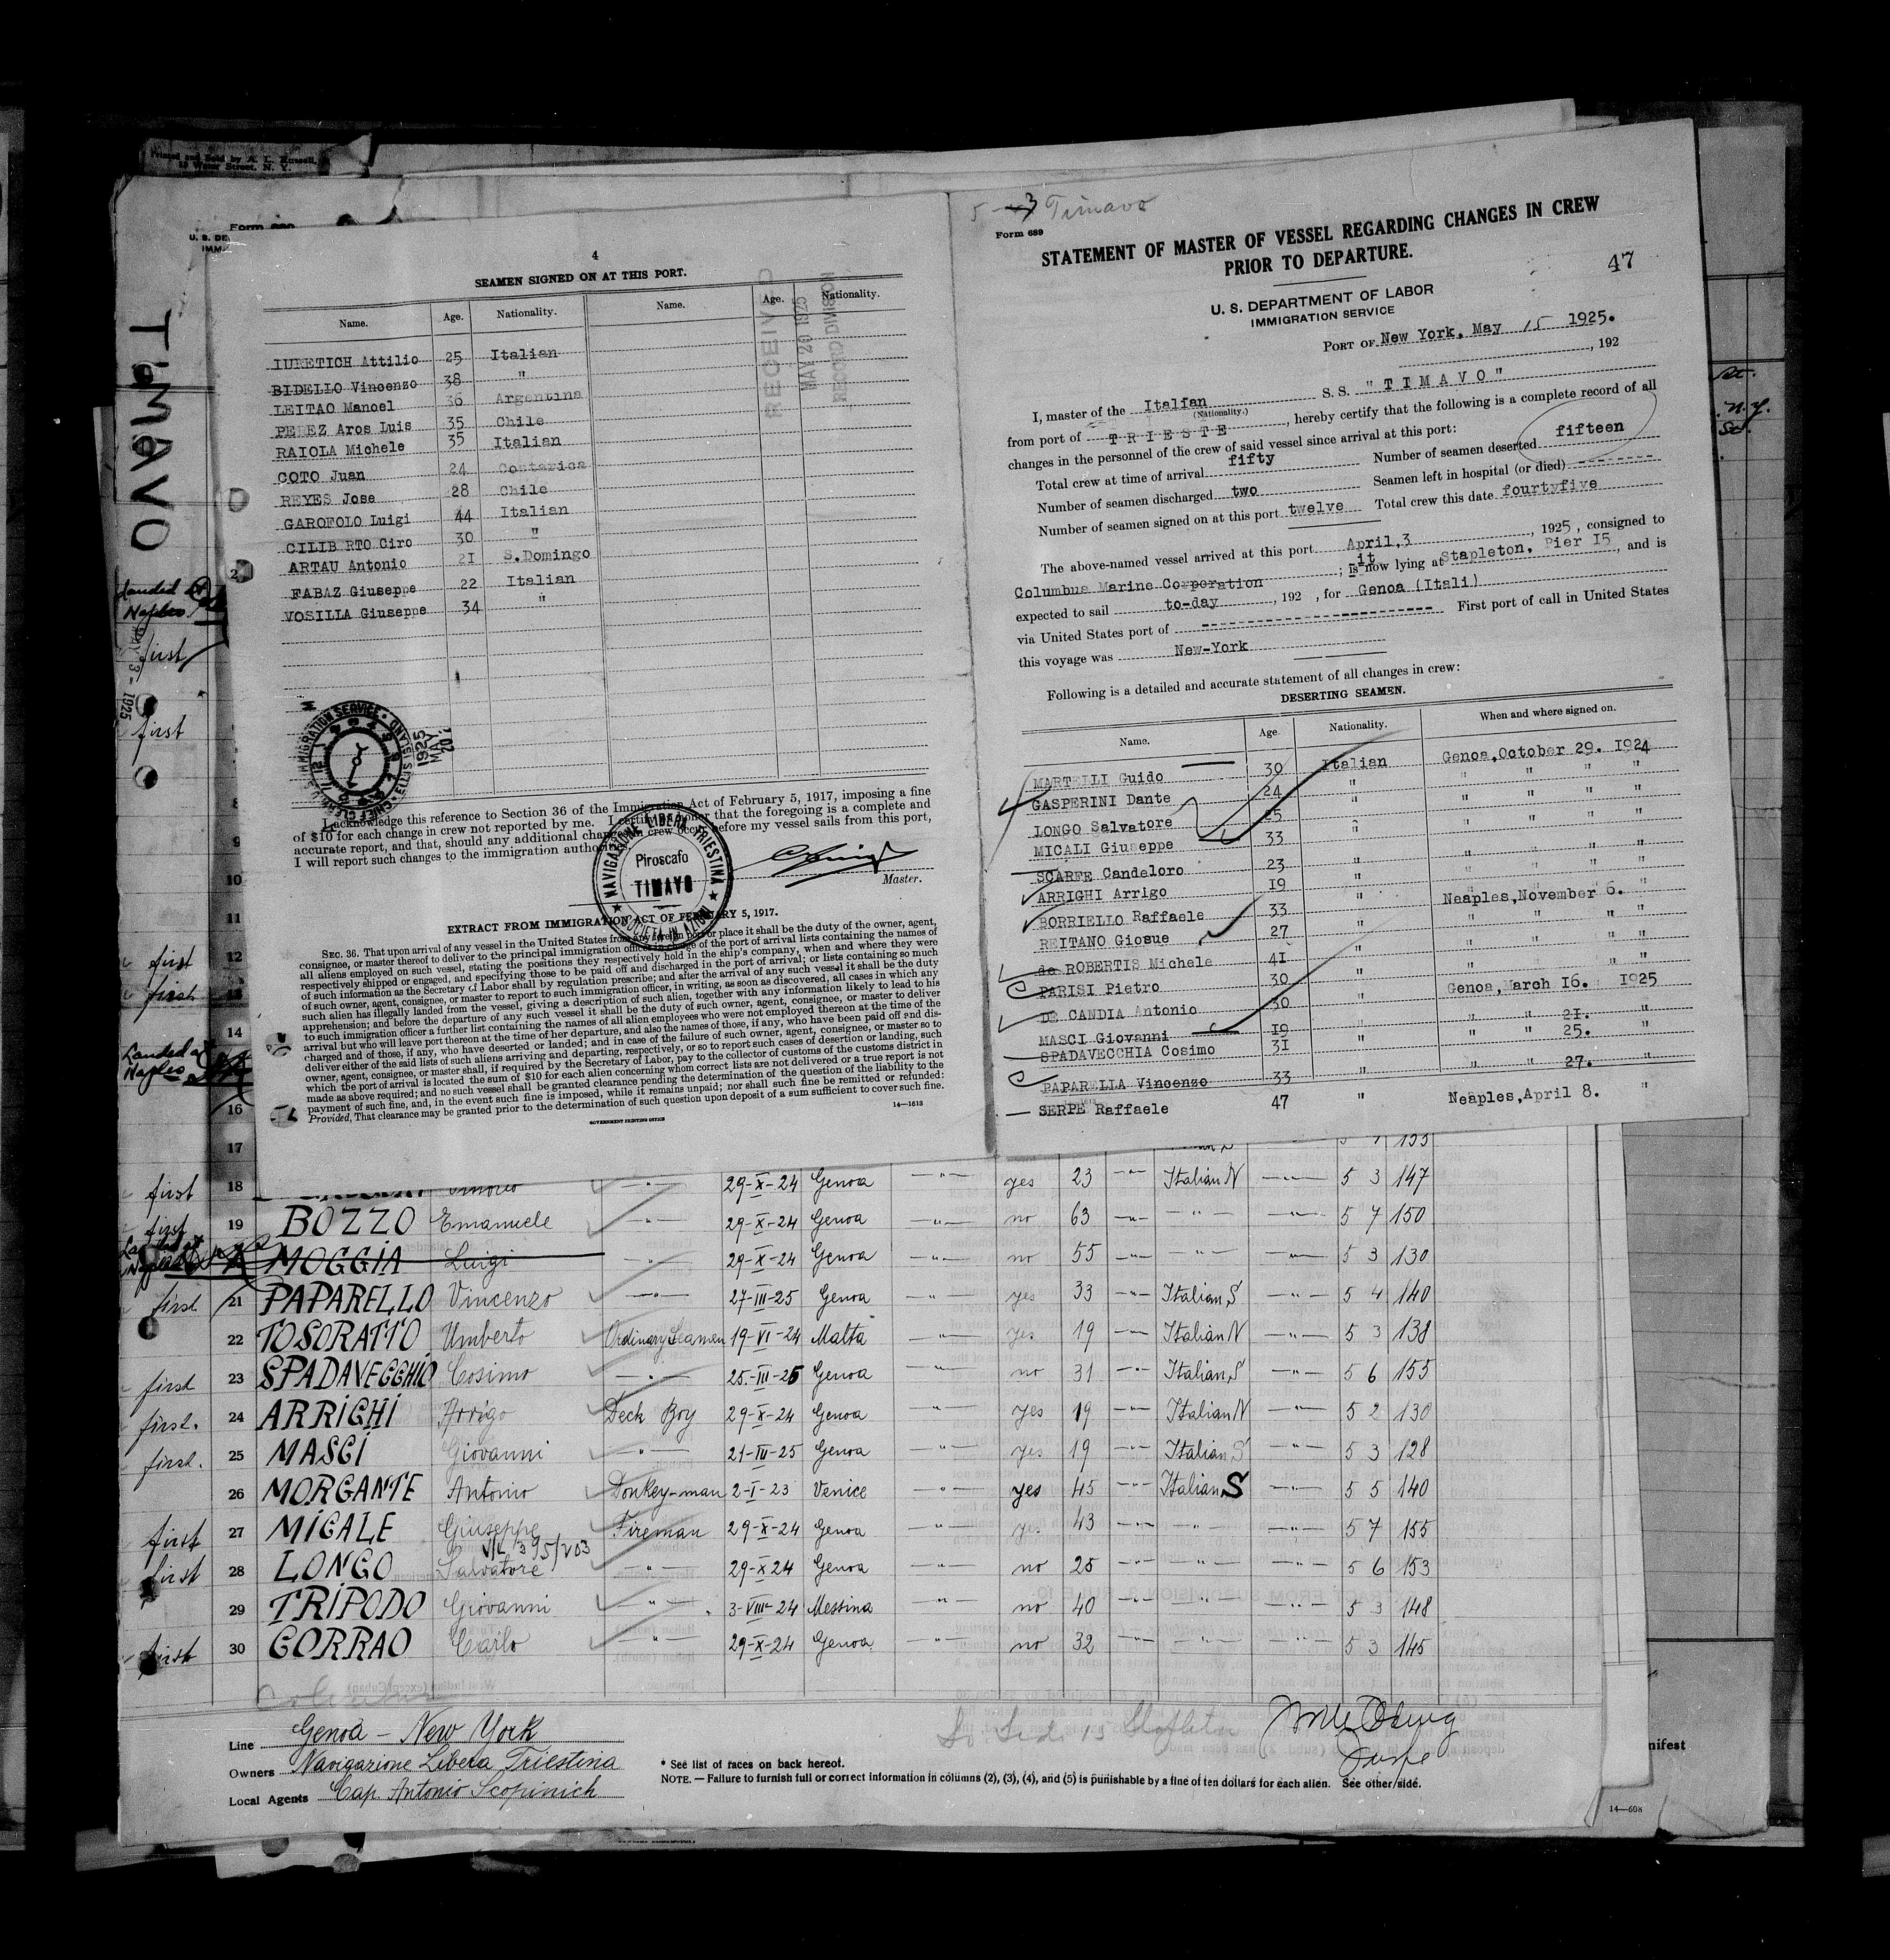 Printed and Sold by A. L. Russell,
Water Street, N. Y.
Form 689
TIMAVO
4
SEAMEN SIGNED ON AT THIS PORT.
Name. Age. Nationality. Name. Age. Nationality.
IURETICH Attilio 25 Italian
BIDELLO Vincenzo 38 "
LEITAO Manoel 36 Argentina
PEREZ Aros Luis 35 Chile
RAIOLA Michele 35 Italian
COTO Juan 24 Costarica
REYES Jose 28 Chile
GAROFOLO Luigi 44 Italian
CILIB RTO Ciro 30 "
ARTAU Antonio 21 S.Domingo
FABAZ Giuseppe 22 Italian
VOSILLA Giuseppe 34 "
RECEIVED
MAY 20 1925
RECORD DIVISION
IMMIGRATION SERVICE
1925 MAY 20
I acknowledge this reference to Section 36 of the Immigration Act of February 5, 1917, imposing a fine
of $10 for each change in crew not reported by me. I certify that the foregoing is a complete and
accurate report, and that, should any additional changes in crew occur before my vessel sails from this port,
I will report such changes to the immigration
Master.
NAVIGAZIONE LIBERA TRIESTINA
Piroscafo
TIMAVO
SOCIETÀ IN AZIONI
EXTRACT FROM IMMIGRATION ACT OF FEBRUARY 5, 1917.
SEC. 36. That upon arrival of any vessel in the United States from any foreign port or place it shall be the duty of the owner, agent,
consignee, or master thereof to deliver to the principal immigration officer in charge of the port of arrival lists containing the names of
all aliens employed on such vessel, stating the positions they respectively hold in the ship's company, when and where they were
respectively shipped or engaged, and specifying those to be paid off and discharged in the port of arrival; or lists containing so much
of such information as the Secretary of Labor shall by regulation prescribe; and after the arrival of any such vessel it shall be the duty
of such owner, agent, consignee, or master to report to such immigration officer, in writing, as soon as discovered, all cases in which any
such alien has illegally landed from the vessel, giving a description of such alien, together with any information likely to lead to his
apprehension; and before the departure of any such vessel it shall be the duty of such owner, agent, consignee, or master to deliver
to such immigration officer a further list containing the names of all alien employees who were not employed thereon at the time of the
arrival but who will leave port thereon at the time of her departure, and also the names of those, if any, who have been paid off and dis-
charged and of those, if any, who have deserted or landed; and in case of the failure of such owner, agent, consignee, or master so to
deliver either of the said lists of such aliens arriving and departing, respectively, or so to report such cases of desertion or landing, such
owner, agent, consignee, or master shall, if required by the Secretary of Labor, pay to the collector of customs of the customs district in
which the port of arrival is located the sum of $10 for each alien concerning whom correct lists are not delivered or a true report is not
made as above required; and no such vessel shall be granted clearance pending the determination of the question of the liability to the
payment of such fine, and, in the event such fine is imposed, while it remains unpaid; nor shall such fine be remitted or refunded:
Provided, That clearance may be granted prior to the determination of such question upon deposit of a sum sufficient to cover such fine.
GOVERNMENT PRINTING OFFICE 14—1613
Timavo
Form 689
STATEMENT OF MASTER OF VESSEL REGARDING CHANGES IN CREW
PRIOR TO DEPARTURE.
47
U. S. DEPARTMENT OF LABOR
IMMIGRATION SERVICE
PORT OF New York, May 15 1925.
, 192
I, master of the Italian S. S. "TIMAVO"
(Nationality.)
from port of TRIESTE, hereby certify that the following is a complete record of all
changes in the personnel of the crew of said vessel since arrival at this port:
Total crew at time of arrival fifty Number of seamen deserted fifteen
Number of seamen discharged two Seamen left in hospital (or died) ---------
Number of seamen signed on at this port twelve Total crew this date fourtyfive
The above-named vessel arrived at this port April,3, 1925, consigned to
Columbus Marine Corporation; it is now lying at Stapleton, Pier 15, and is
expected to sail to-day, 192 , for Genoa (Itali)
via United States port of ---------- First port of call in United States
this voyage was New-York
Following is a detailed and accurate statement of all changes in crew:
DESERTING SEAMEN.
Name. Age Nationality. When and where signed on.
MARTELLI Guido 30 Italian Genoa,October 29. 1924
GASPERINI Dante 24 " " " " "
LONGO Salvatore 25 " " " " "
MICALI Giuseppe 33 " " " " "
SCARFE Candeloro 23 " " " " "
ARRIGHI Arrigo 19 " " " " "
BORRIELLO Raffaele 33 " Neaples,November 6. "
REITANO Giosue 27 " " " " "
de ROBERTIS Michele 41 " " " " "
PARISI Pietro 30 " " " " "
DE CANDIA Antonio 30 " Genoa,March 16. 1925
MASCI Giovanni 19 " " " 21. "
SPADAVECCHIA Cosimo 31 " " 25. "
PAPARELLA Vincenzo 33 " " " 27. "
SERPE Raffaele 47 " Neaples,April 8. "
Landed at
Naples
first
first
9
10
11
first 12
first
14
Landed at
Naples
16
17
first 18 29-X-24 Genoa —"— yes 23 —"— Italian N —"— 5 3 147
first 19 BOZZO Emanuele —"— 29-X-24 Genoa —"— no 63 —"— —"— —"— 5 7 150
MOGGIA Luigi " 29-X-24 Genoa —"— no 55 —"— —"— —"— 5 3 130
first 21 PAPARELLO Vincenzo —"— 27-III-25 Genoa —"— yes 33 —"— Italian S —"— 5 4 140
22 TOSORATTO Umberto Ordinary Seamen 19-VI-24 Malta —"— yes 19 —"— Italian N —"— 5 3 138
first 23 SPADAVECCHIO Cosimo —"— 25-III-25 Genoa —"— no 31 —"— Italian S —"— 5 6 155
first. 24 ARRIGHI Arrigo Deck Boy 29-X-24 Genoa —"— yes 19 —"— Italian N —"— 5 2 130
first. 25 MASCI Giovanni —"— 21-III-25 Genoa —"— yes 19 —"— Italian S —"— 5 3 128
26 MORGANTE Antonio Donkey-man 2-I-23 Venice —"— yes 45 —"— Italian S —"— 5 5 140
first 27 MICALE Giuseppe Fireman 29-X-24 Genoa —"— yes 43 —"— —"— —"— 5 7 155
first 28 LONGO Salvatore —"— 29-X24 Genoa —"— no 25 —"— —"— —"— 5 6 153
29 TRIPODO Giovanni —"— 3-VIII-24 Messina —"— no 40 —"— —"— —"— 5 3 148
first 30 CORRAO Carlo —"— 29-X-24 Genoa —"— no 32 —"— —"— —"— 5 3 145
Line Genoa - New York
Owners Navigazione Libera Triestina
Local Agents Cap. Antonio Scopinich
* See list of races on back hereof.
NOTE.—Failure to furnish full or correct information in columns (2), (3), (4), and (5) is punishable by a fine of ten dollars for each alien. See other side.
14—608